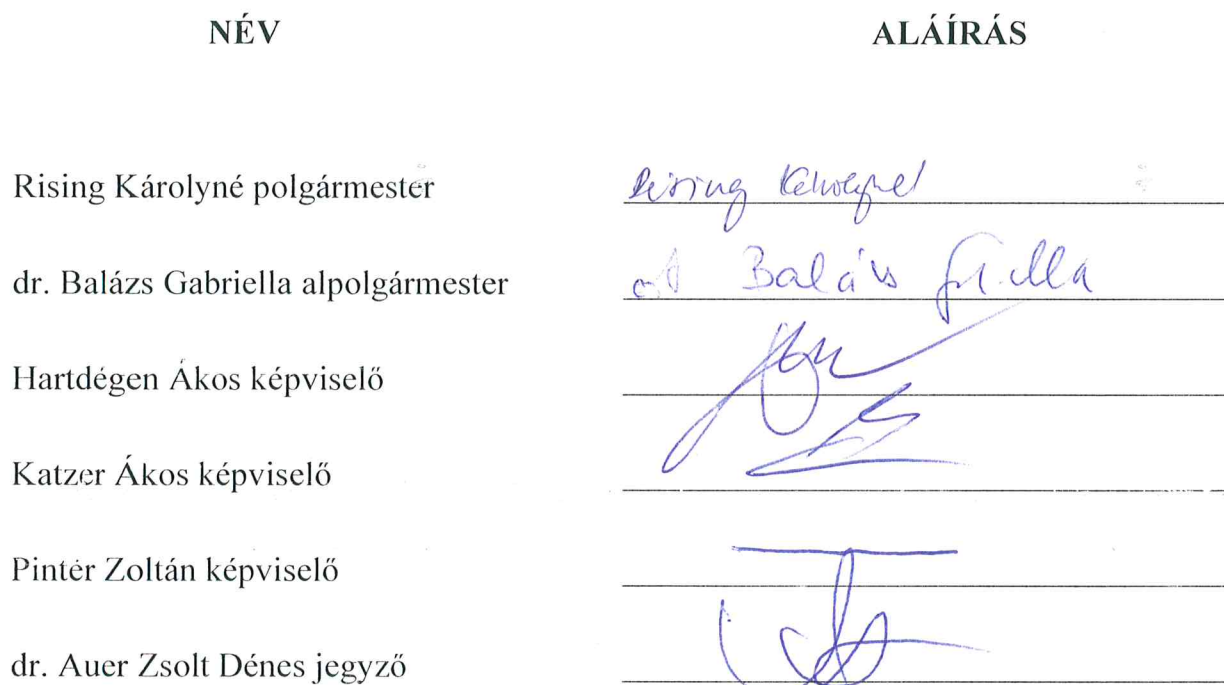 NÉV ALÁÍRÁS
Rising Károlyné polgármester Rising Károlyné
dr. Balázs Gabriella alpolgármester Balázs
Hartdégen Ákos képviselő
Katzer Ákos képviselő
Pintér Zoltán képviselő
dr. Auer Zsolt Dénes jegyző